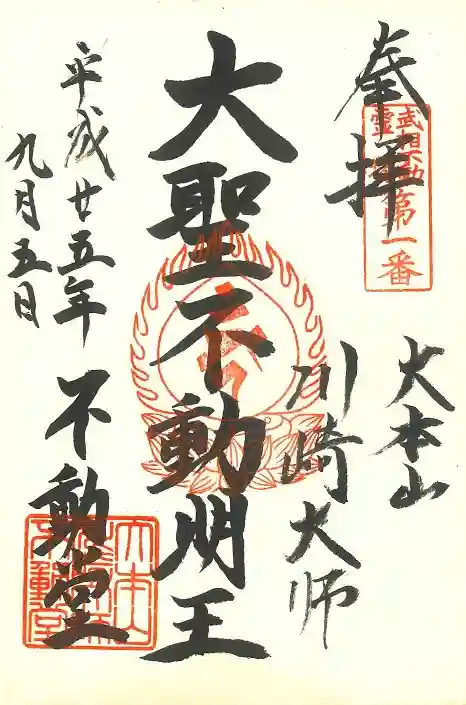 奉拝
武相不動
霊場
第一番
大本山
川崎大師
大聖不動明王
不動堂
平成廿五年
九月五日